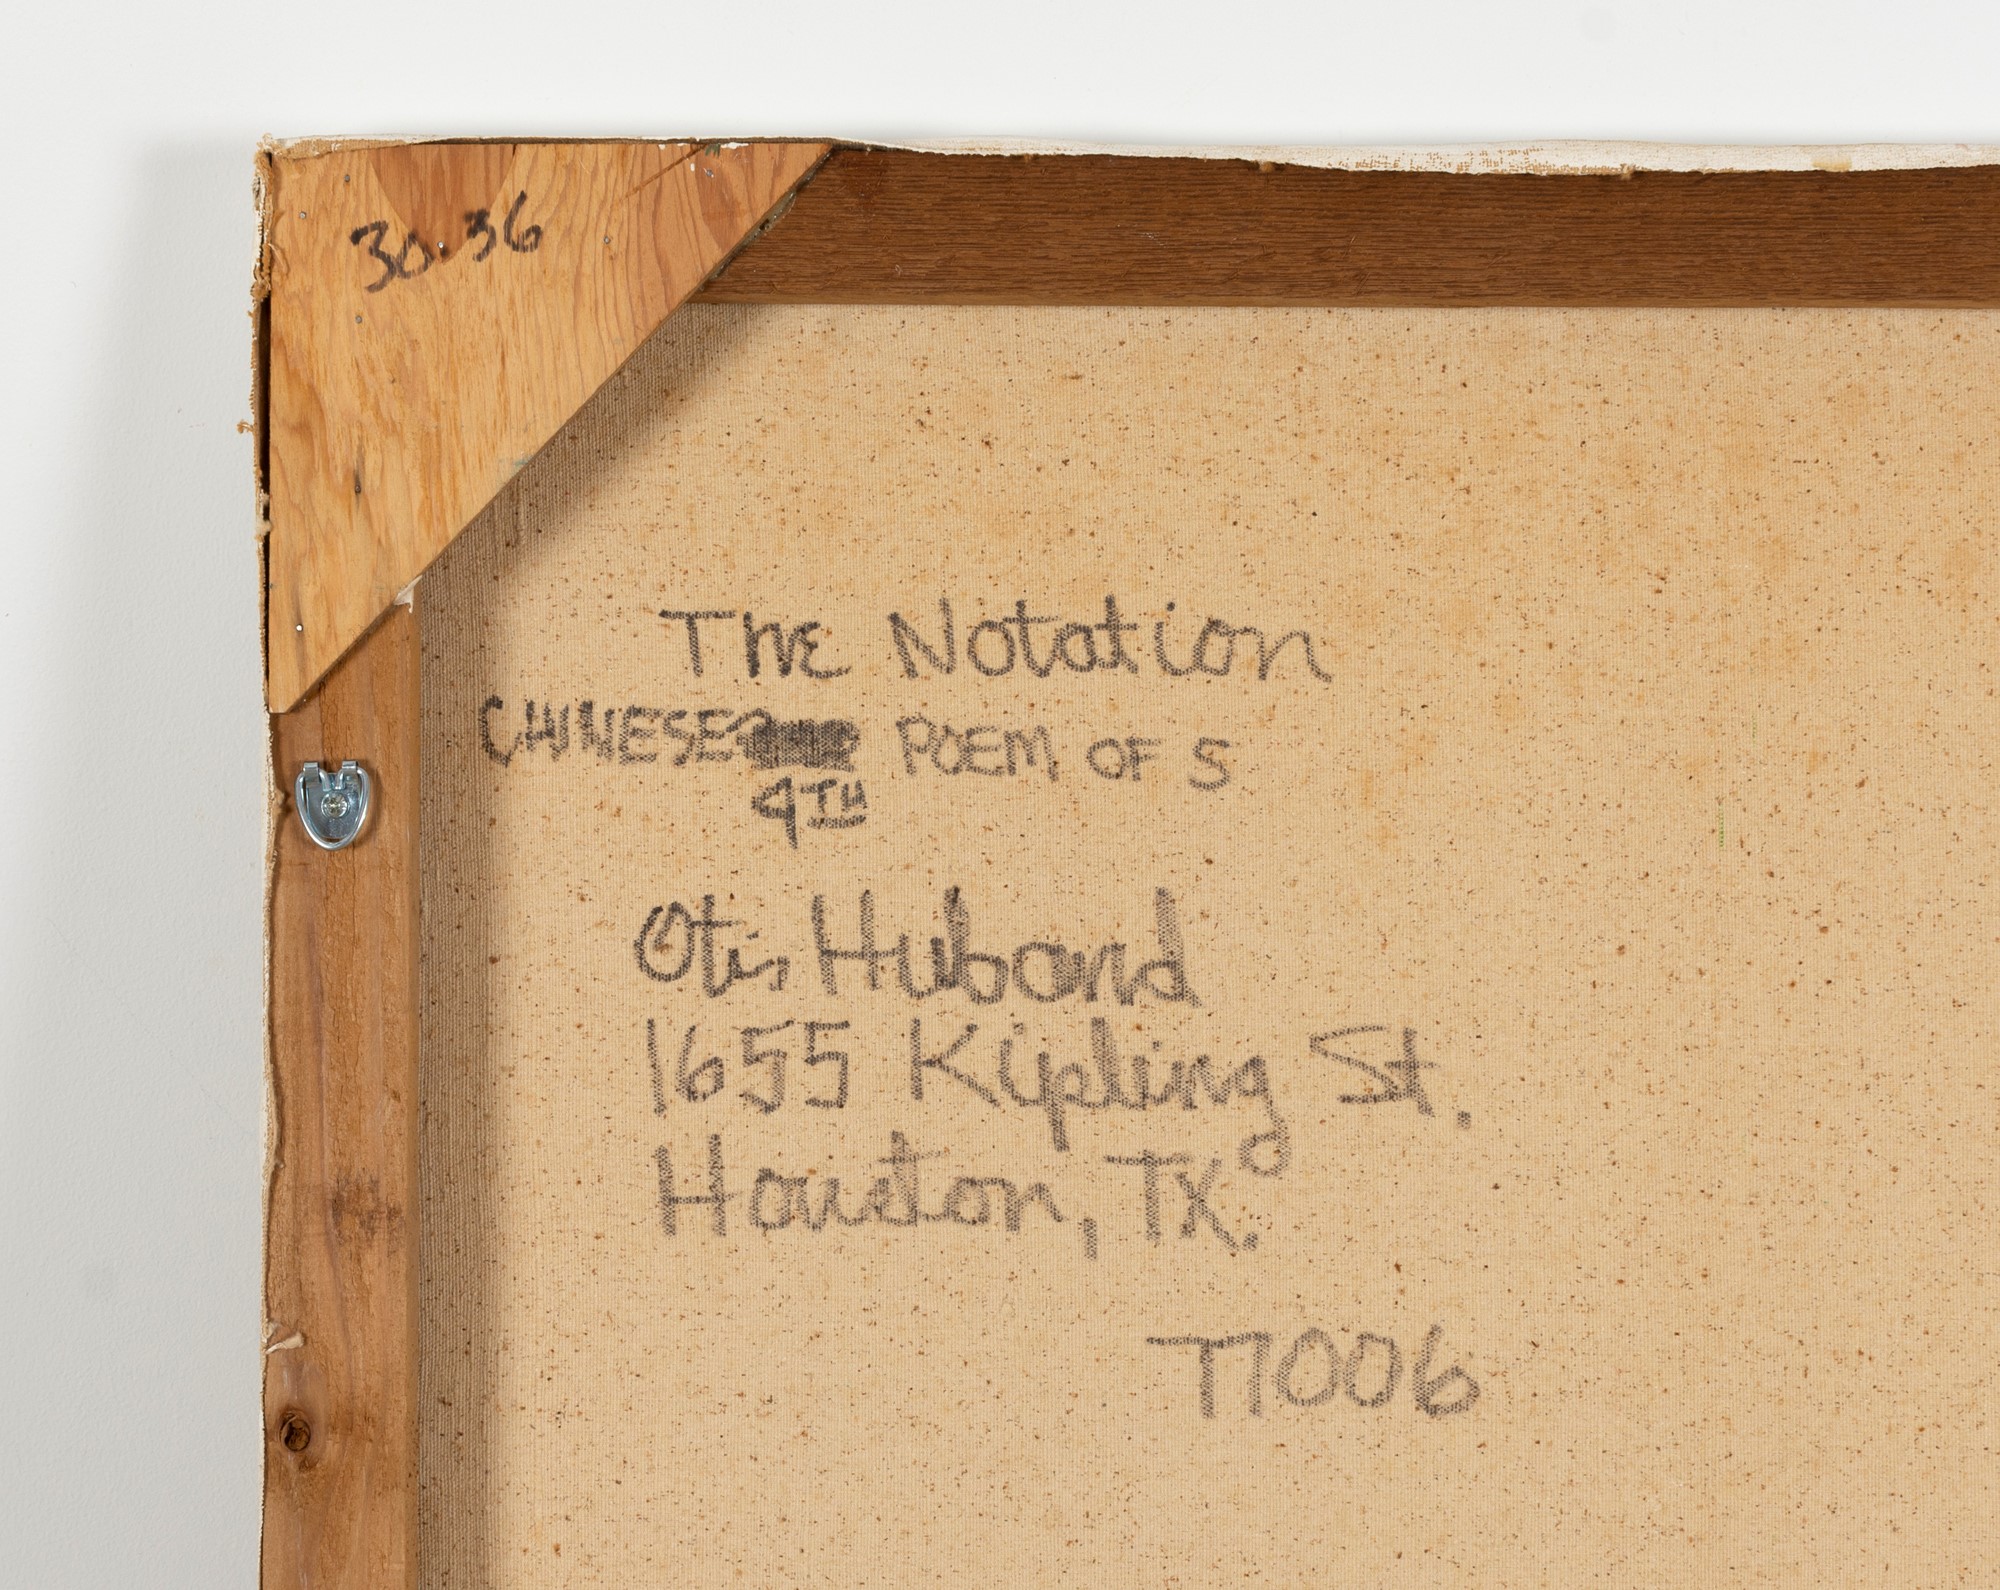 30.36
The Notation
CHINESE POEM OF 5
4TH
Otis Huband
1655 Kipling St.
Houston, TX.
77006